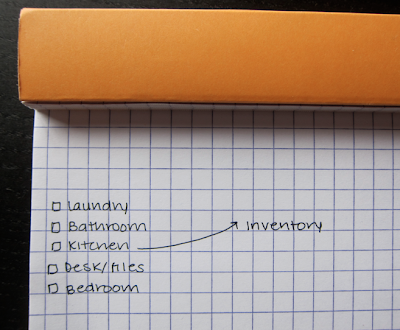 laundry
Bathroom
Kitchen → inventory
Desk/files
Bedroom